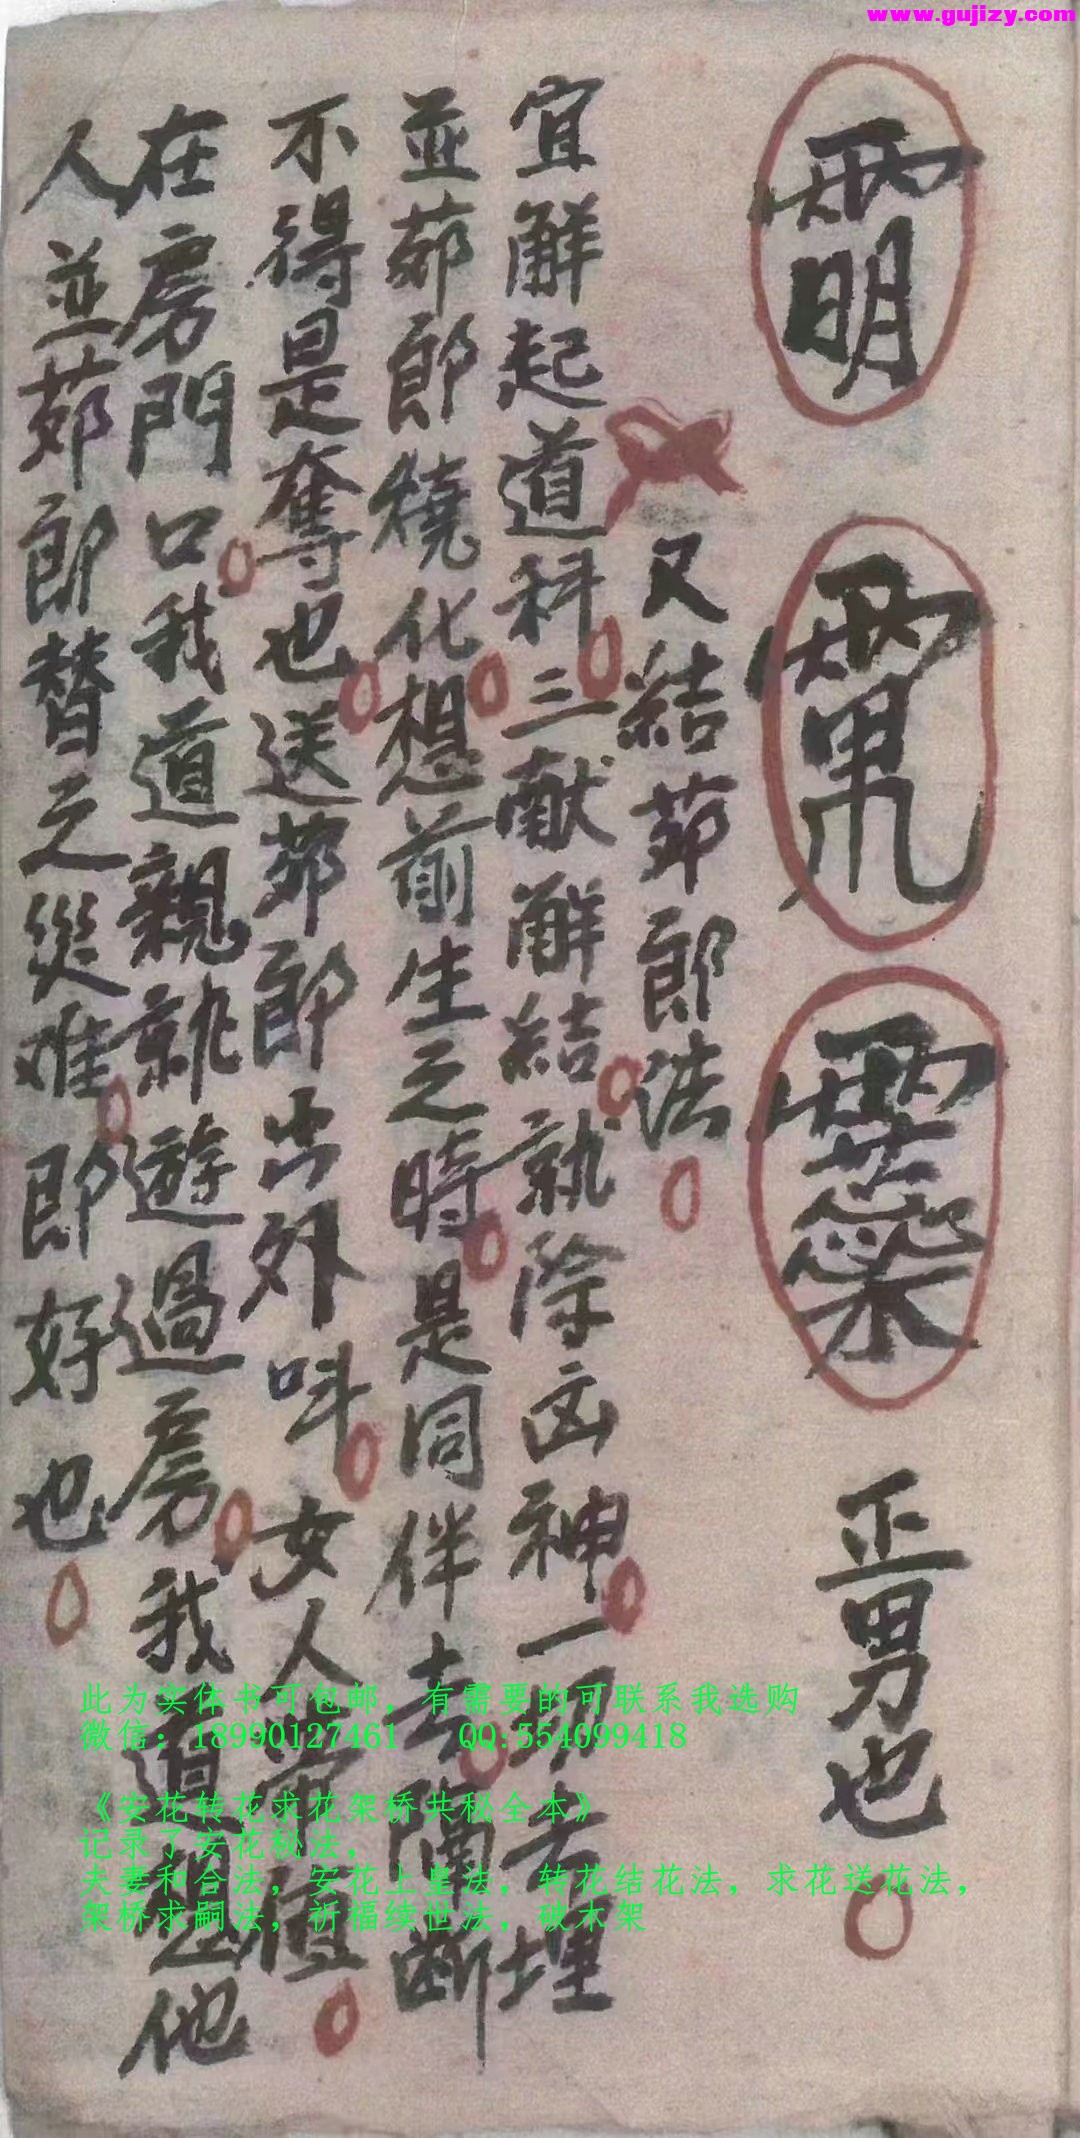 www.gujizy.com
正男也
又結茆郎法
宜解起道科三献解結執除凶神一切去埋
並茆郎燒化想前生之時是同伴去隔断
不得是奪也送茆郎出外呌女人常值
在房門口我道親就遊過房我道是他
人並茆郎替之災难即好也
此为实体书可包邮，有需要的可联系我选购
微信：18990127461 QQ:554099418
《安花转花求花架桥共秘全本》
记录了安花秘法，
夫妻和合法，安花上皇法，转花结花法，求花送花法，
架桥求嗣法，祈福续世法，破木架